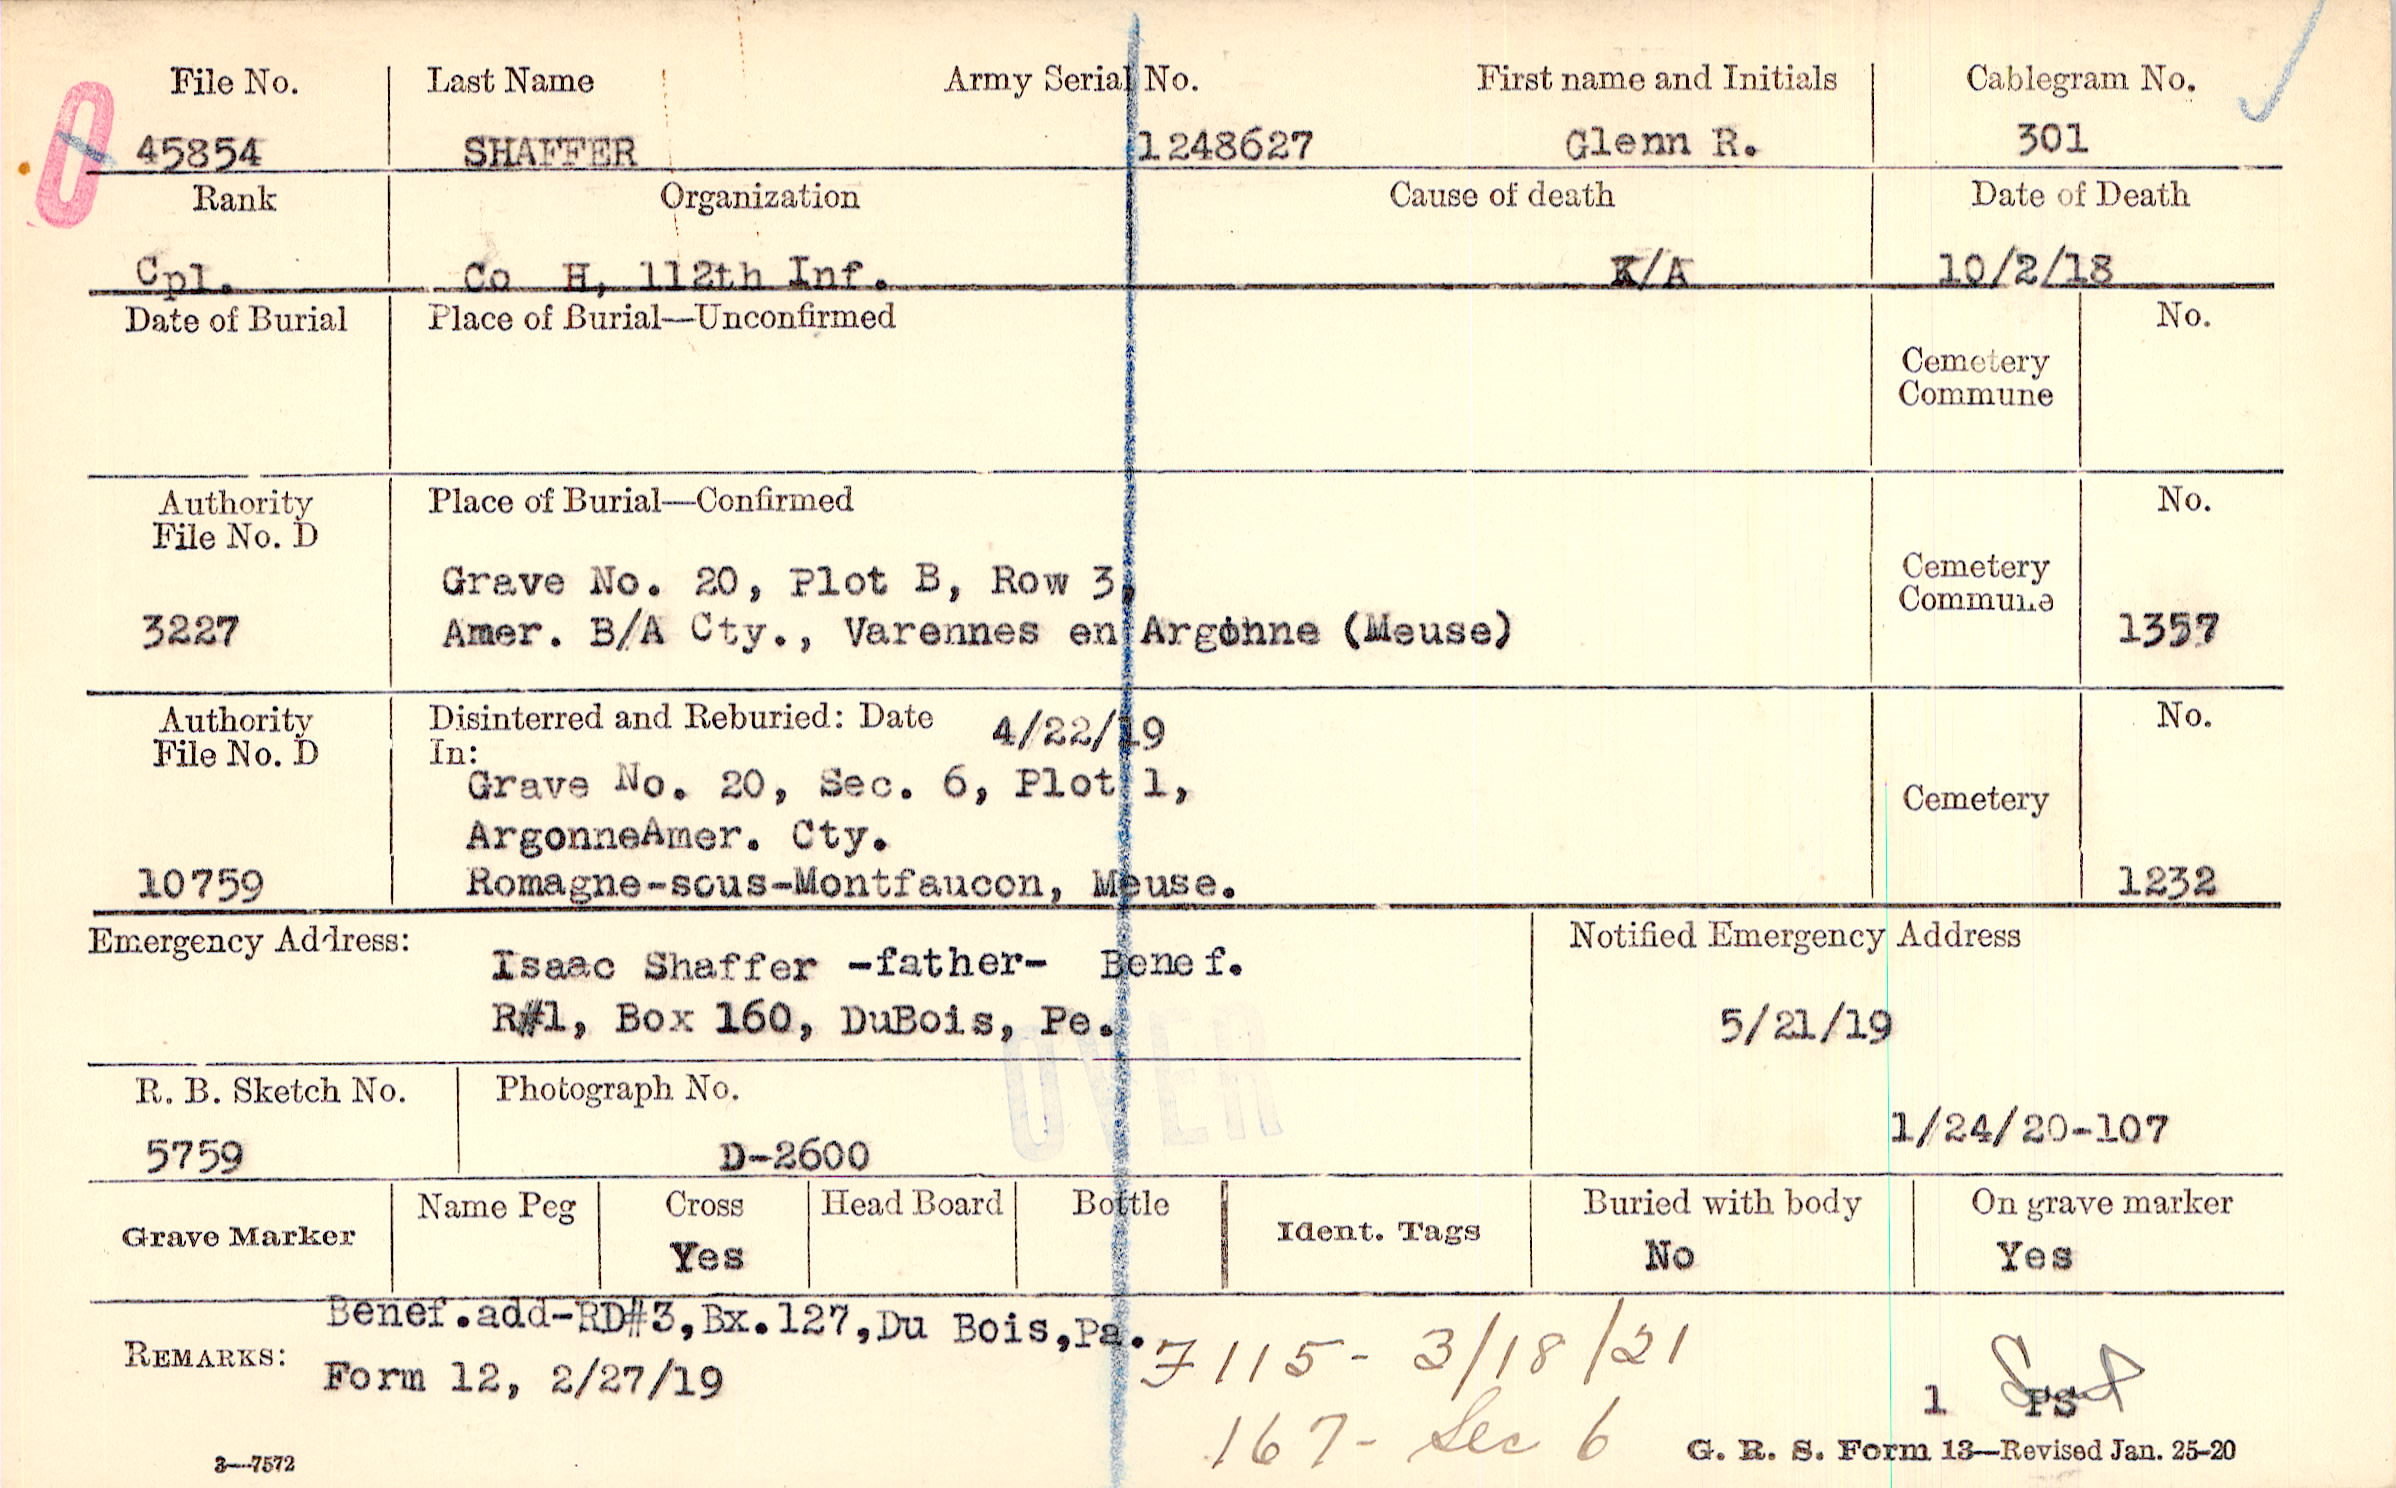 O
File No. Last Name Army Serial No. First name and Initials Cablegram No.
45854 SHAFFER 1248627 Glenn R. 301
Rank Organization Cause of death Date of Death
Cpl. Co H, 112th Inf. K/A 10/2/18
Date of Burial Place of Burial—Unconfirmed No.
Cemetery
Commune
Authority Place of Burial—Confirmed No.
File No. D
Grave No. 20, Plot B, Row 3, Cemetery
Commune
3227 Amer. B/A Cty., Varennes en Argonne (Meuse) 1357
Authority Disinterred and Reburied: Date 4/22/19 No.
File No. D In:
Grave No. 20, Sec. 6, Plot 1, Cemetery
ArgonneAmer. Cty.
10759 Romagne-sous-Montfaucon, Meuse. 1232
Emergency Address: Notified Emergency Address
Isaac Shaffer -father- Benef.
R#1, Box 160, DuBois, Pe. 5/21/19
OVER
R. B. Sketch No. Photograph No.
1/24/20-107
5759 D-2600
Grave Marker Name Peg Cross Head Board Bottle Ident. Tags Buried with body On grave marker
Yes No Yes
Benef.add-RD#3,Bx.127,Du Bois,Pa.
REMARKS: 7115- 3/18/21
Form 12, 2/27/19
1 PS
167- Sec 6
3—7572 G. R. S. Form 13—Revised Jan. 25-20